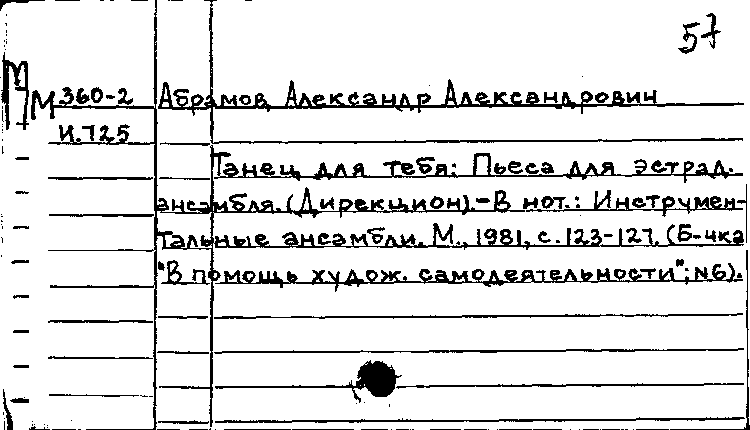 57
М 360-2 Абрамов, Александр Александрович
И.725
Танец для тебя: Пьеса для эстрад.
ансамбля. (Дирекцион).-В нот.: Инструмен-
тальные ансамбли. М., 1981, с. 123-127. (Б-чка
"В помощь худож. самодеятельности"; №6).